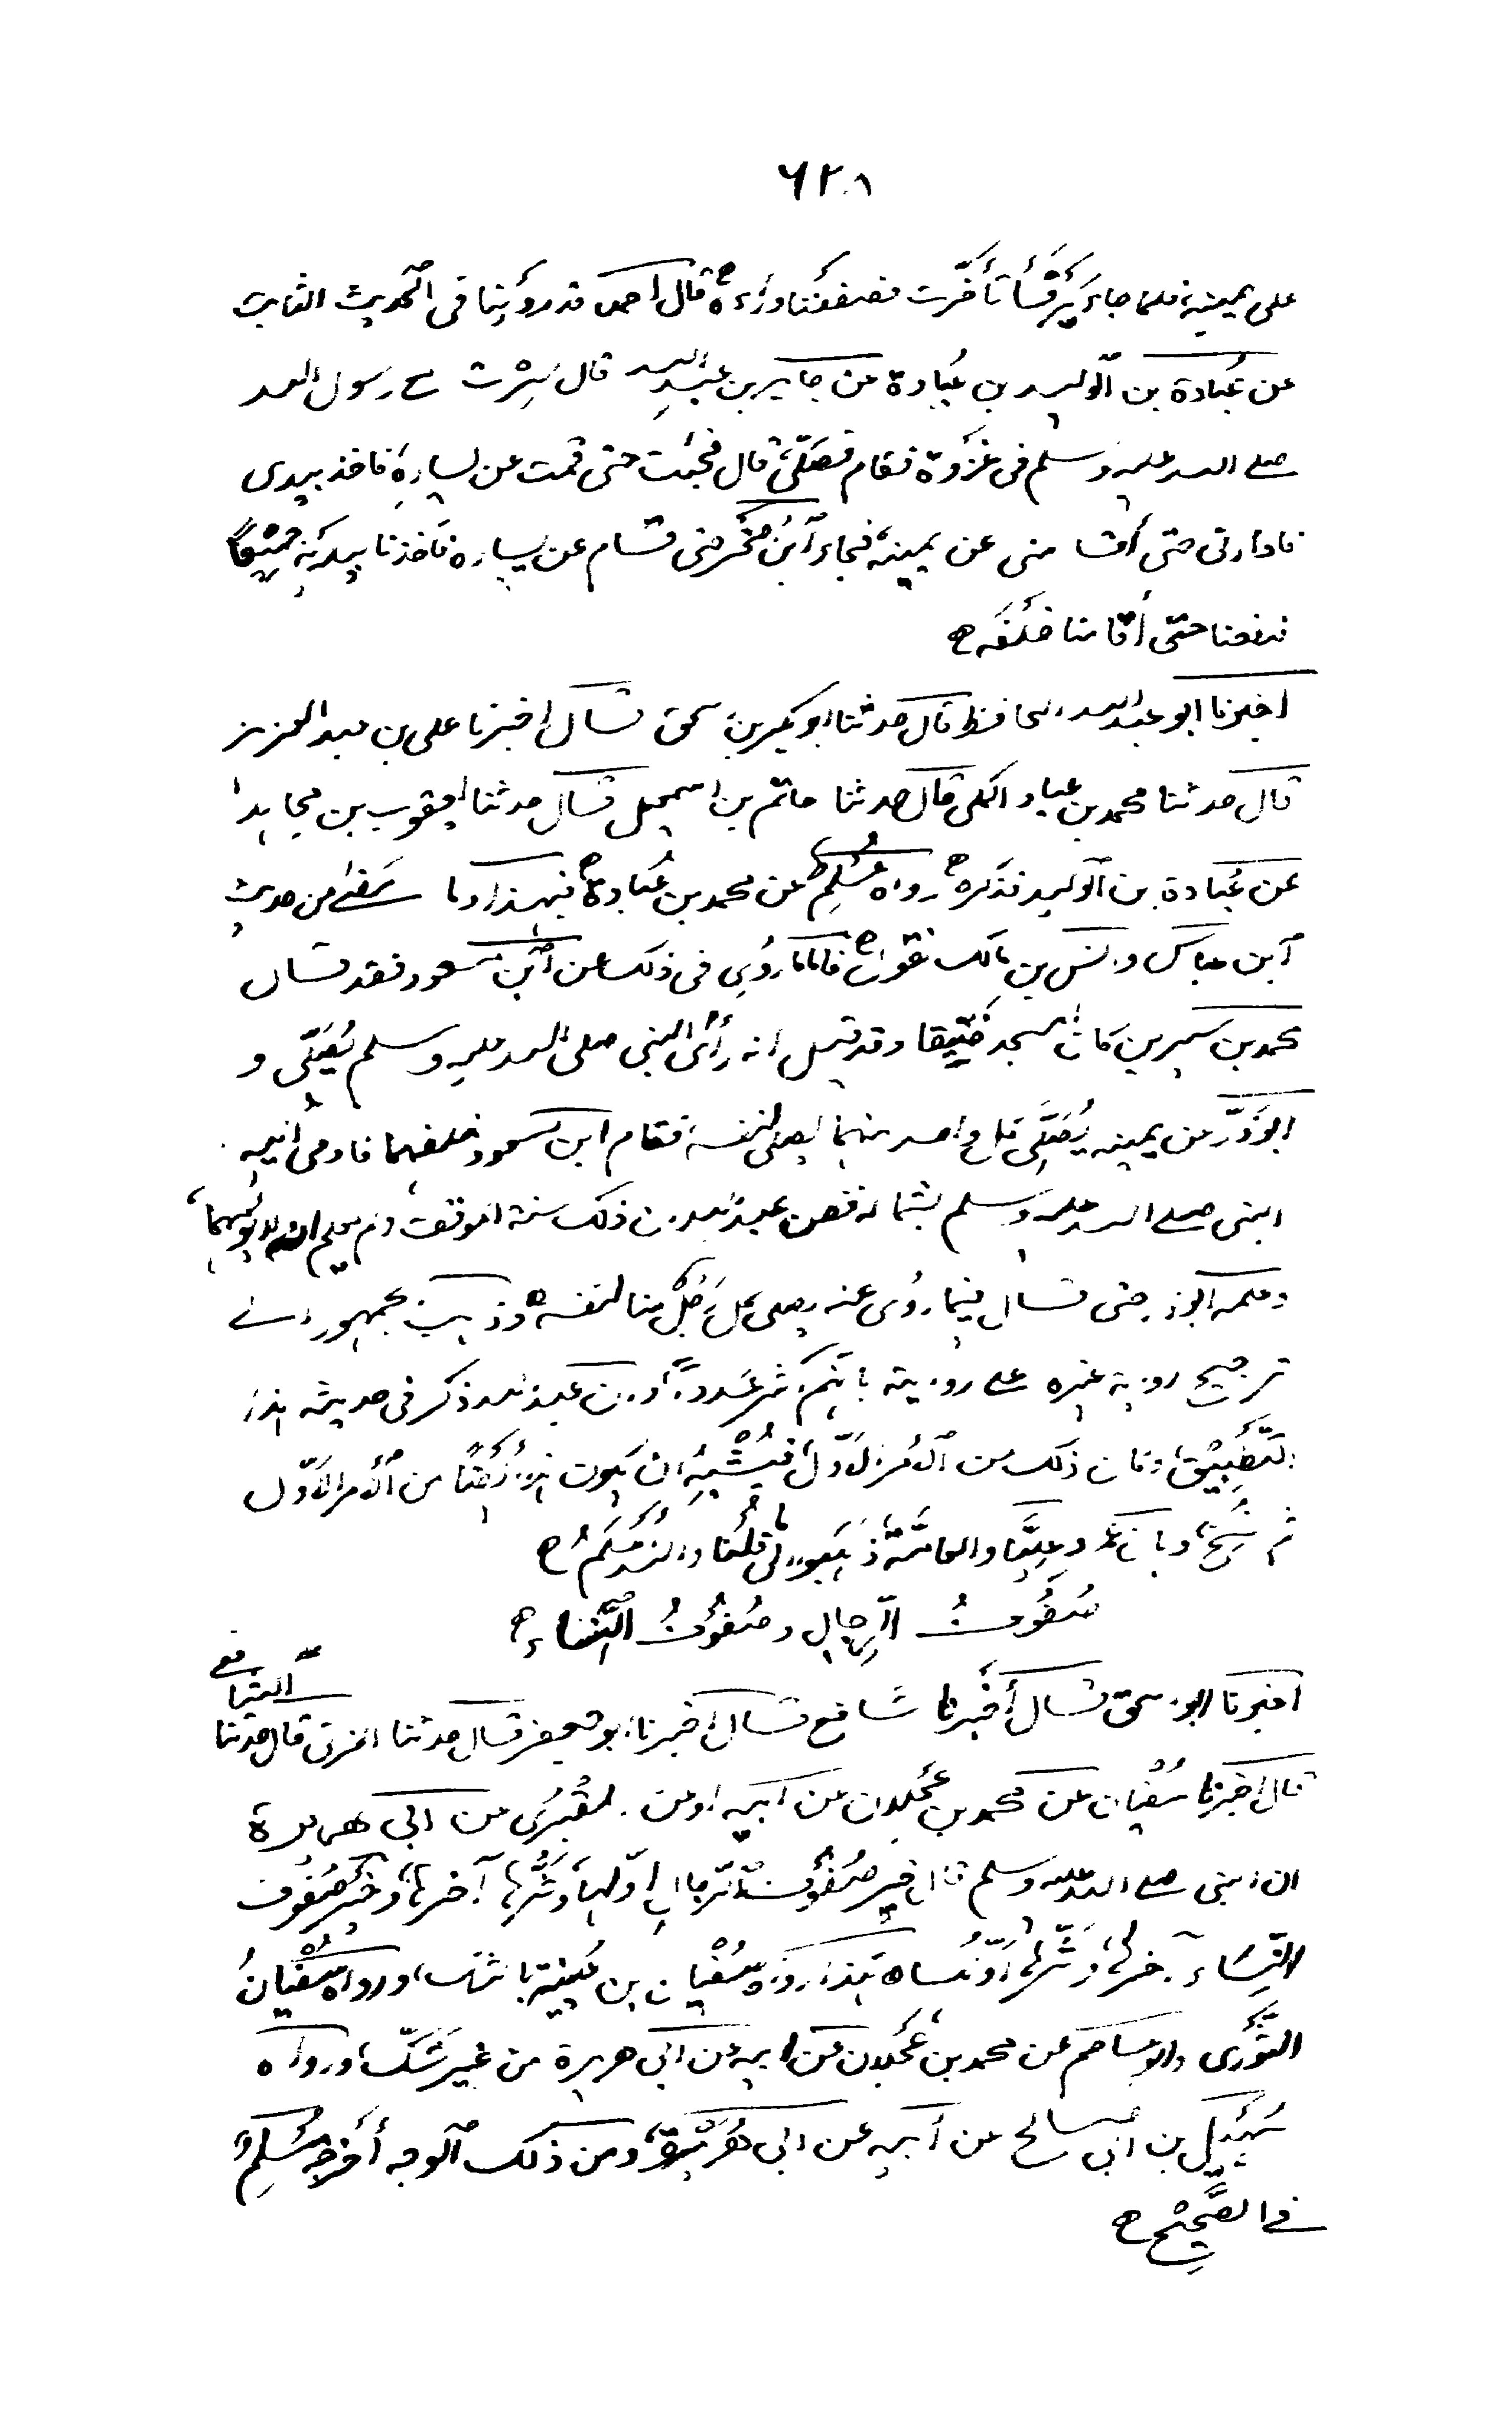 ٦٢٨
على يمينه فلما جاء يَرْفَأُ تأخّرت فصففنا وراءه قال احمد قد روينا فى الحديث الثابت
عن عُبادة بن الوليد بن عُبادة عن جابر بن عبد الله قال سِرْت مع رسول الله
صلى الله عليه وسلم فى غزوة فقام فصَلّى قال فجئت حتى قمت عن يساره فاخذ بيدى
فادارنى حتى أقامنى عن يمينه فجاء ابن صخر حتى قام عن يساره فاخذنا بيديه جميعًا
فدفعنا حتى أقامنا خلفه
اخبرنا ابو عبد الله الحافظ قال حدثنا ابو بكر بن اسحق قال اخبرنا على بن عبد العزيز
قال حدثنا محمد بن عباد المكى قال حدثنا حاتم بن اسمعيل قال حدثنا يعقوب بن مجاهد
عن عُبادة بن الوليد فذكره رواه مُسْلِم عن محمد بن عُبادة فهذا وما مضى من حديث
ابن عباس وانس بن مالك نقول فاما ما رُوى فى ذلك عن ابن مسعود فقد قال
محمد بن سيرين كان المسجد ضَيّقا وقد قيل انه رأى النبى صلى الله عليه وسلم يُصَلّى و
ابو ذَرّ عن يمينه يُصَلّى كل واحد منهما يصلى لنفسه فقام ابن مسعود خلفهما فاومى اليه
النبى صلى الله عليه وسلم بشماله فظن عبد الله ان ذلك سنة الموقف ولم يعلم انه لا يؤمهما
وعلمه ابو ذر حتى قال فيما رُوى عنه يصلى كل رجل منا لنفسه وذهب الجمهور الى
ترجيح رواية غيره على روايته بانهم اكثر عَددا وان عبد الله ذكر فى حديثه هذا
التَّطْبِيق وكان ذلك من الامر الاول فيُشْبِه ان يكون هذا ايضًا من الامر الاوّل
ثم نُسِخ وبان عمر وعليّا والعامّة ذهبوا الى ما قُلْنا والله اعلم
صفوف الرِّجال وصفوف النِّساء
اخبرنا ابو اسحق قال أخبرنا شافع قال اخبرنا ابو جعفر قال حدثنا المزنى قال حدثنا
الشافعى
قال اخبرنا سُفْيان عن محمد بن عَجْلان عن ابيه او عن المقبرى عن ابى هريرة
ان النبى صلى الله عليه وسلم قال خير صفوف الرجال اوّلها وشرّها آخرها وخير صفوف
النِّسَاء آخرها وشرّها اوّلها هكذا رواه سُفْيان بن عُيينة بالشك ورواه سُفْيانُ
الثَّورى وابو عاصم عن محمد بن عَجْلان عن ابيه عن ابى هريرة من غير شَكّ ورواه
سُهَيل بن ابى صالح عن أبيه عن ابى هُرَيرة ومن ذلك الوجه أخرجه مُسْلِم
فى الصَّحيح